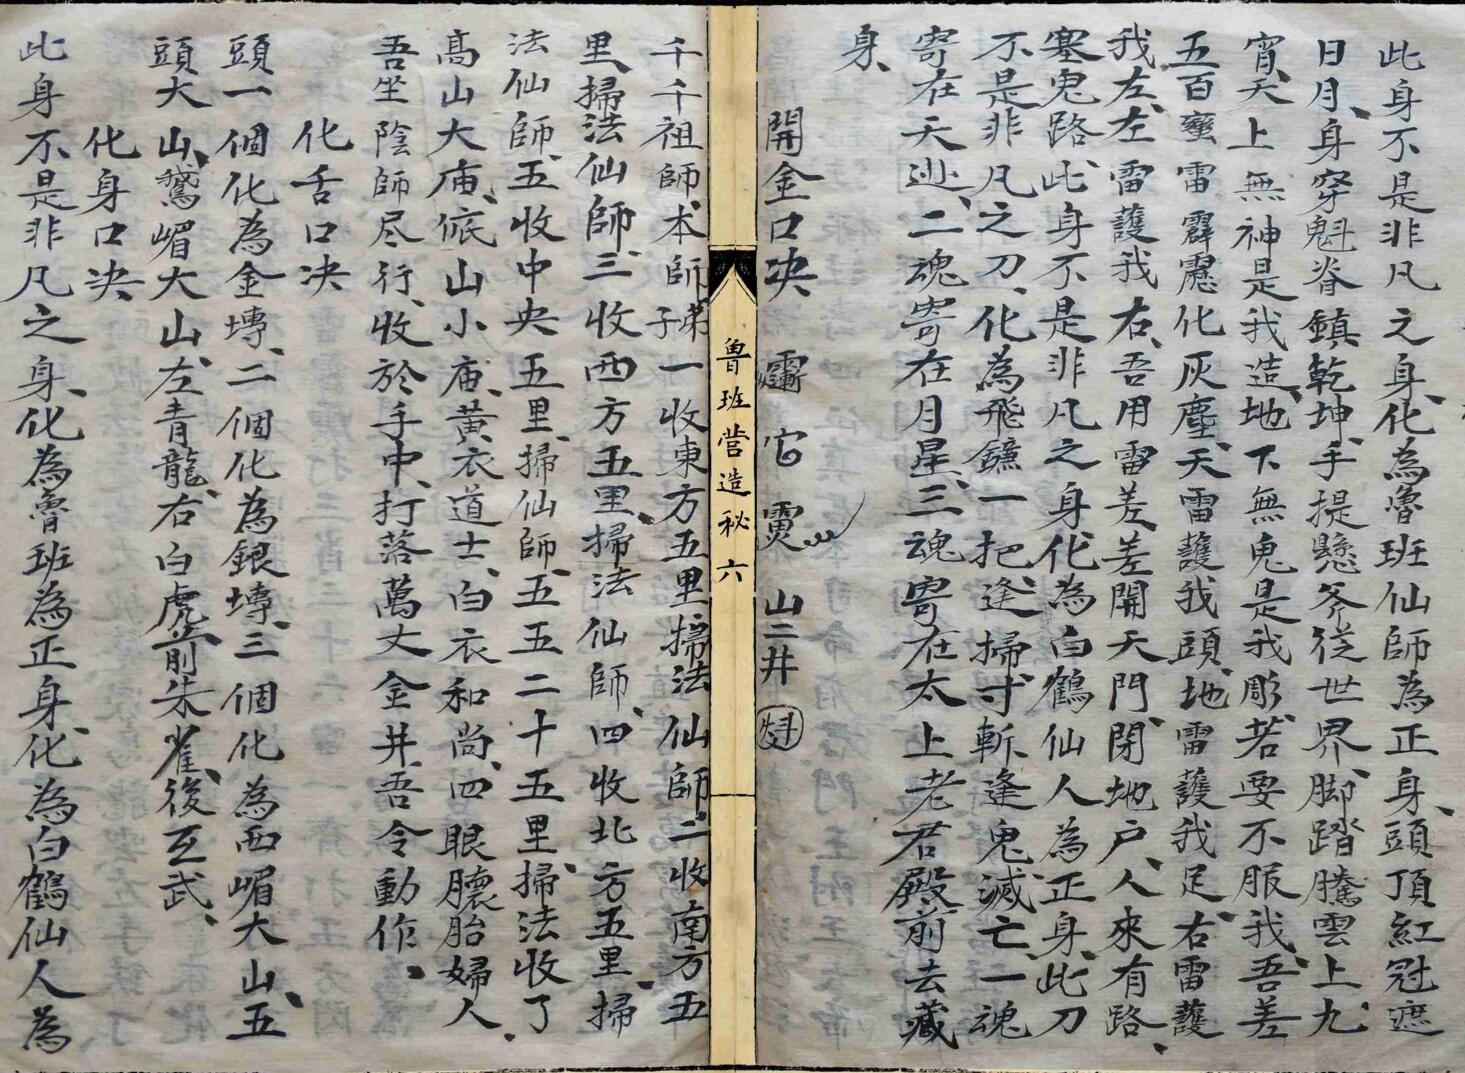 此身不是非凡之身、化為魯班仙師為正身、頭頂紅冠遮
日月、身穿魁脊鎮乾坤、手提懸斧從世界、脚踏騰雲上九
宵、天上無神是我造、地下無鬼是我彫、若要不服我、吾差
五百蠻雷霹靂化灰塵、天雷護我頭、地雷護我足、右雷護
我左、左雷護我右、吾用雷差差開天門、閉地户、人來有路、
塞鬼路、此身不是非凡之身、化為白鶴仙人為正身、此刀
不是非凡之刀、化為飛鐮一把、逢掃寸斬、逢鬼滅亡、一魂
寄在天邊、二魂寄在月星、三魂寄在太上老君殿前去藏
身、
開金口决 山二井
魯班营造秘 六
千千祖師、本師弟子一收東方五里、掃法仙師、二收南方五
里、掃法仙師、三收西方五里、掃法仙師、四收北方五里、掃
法仙師、五收中央五里、掃仙師、五五二十五里、掃法收了
高山大庙、底山小庙、黄衣道士、白衣和尚、四眼懷胎婦人、
吾坐陰師尽行、收於手中、打落萬丈金井、吾令動作。
化舌口决
頭一個化為金塼、二個化為銀塼、三個化為西嵋大山、五
頭大山、鵞嵋大山、左青龍、右白虎、前朱雀、後玄武、
化身口决
此身不是非凡之身、化為魯班為正身、化為白鶴仙人為